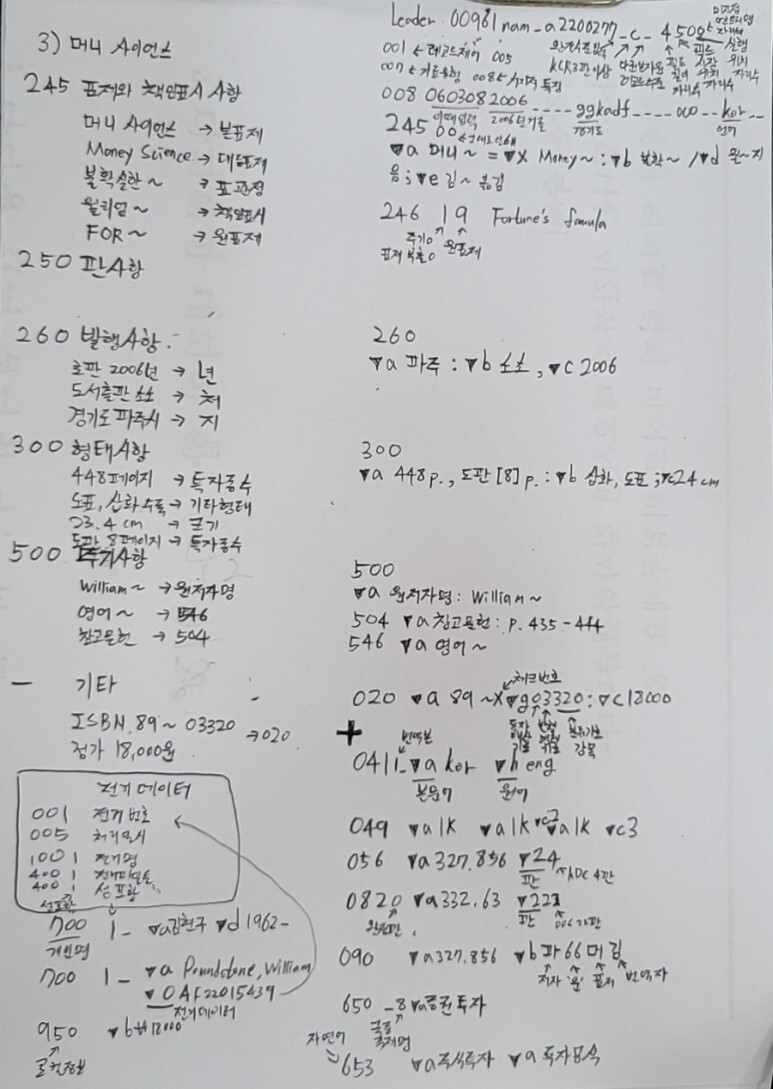 3) 머니 사이언스
245 표제와 책임표시 사항
머니 사이언스 → 본표제
Money Science → 대등표제
불확실한 ~ → 표관정
윌리엄 ~ → 책임표시
FOR ~ → 원표제
250 판사항
260 발행사항.
초판 2006년 → 년
도서출판 소소 → 처
경기도 파주시 → 지
300 형태사항
448페이지 → 특자종수
도표, 삽화수록 → 기타형태
23.4 cm → 크기
도판 8페이지 → 특자종수
500 주기사항
William ~ → 원저자명
영어 ~ → 546
참고문헌 → 504
- 기타
ISBN. 89 ~ 03320 → 020
정가 18,000원
전거 데이터
001 전거 번호
005 처리일시
100 1 전거명
400 1
400 1
700 1_ ▼a김현구 ▼d 1962-
개인명
700 1_ ▼a Poundstone, William
▼0 AF22015439
전거데이터
950 ▼b ₩18000
Leader 00961nam_a2200277_c_4500
001 ← 레코드제어 005
008 060308 2006 ---- ggkadf ---- 000 -- kor
경기도
언어
245 00
▼a 머니 ~ = ▼x Money ~ : ▼b 불확 ~ / ▼d 윌 ~ 지
음 ; ▼e 김 ~ 옮김
246 19 Fortune's formula
원표제
260
▼a 파주 : ▼b 소소, ▼c 2006
300
▼a 448 p., 도판 [8] p. : ▼b 삽화, 도표 ; ▼c 24 cm
500
▼a 원저자명 : William ~
504 ▼a 참고문헌 : p. 435-444
546 ▼a 영어 ~
체크번호
020 ▼a 89 ~ X ▼g 03320 : ▼c 18000
+
번역본
041 1_ ▼a kor ▼h eng
본문어 원어
049 ▼a 1k ▼a 1k ▼c2 ▼a 1k ▼c3
056 ▼a 327.856 ▼2 4
판 KDC 4판
082 0 ▼a 332.63 ▼2 22
판
090 ▼a 327.856 ▼b 파66머김
저자 '운' 표제 번역자
650 _8 ▼a 증권투자
자연어
653 ▼a 주식투자 ▼a 투자방식